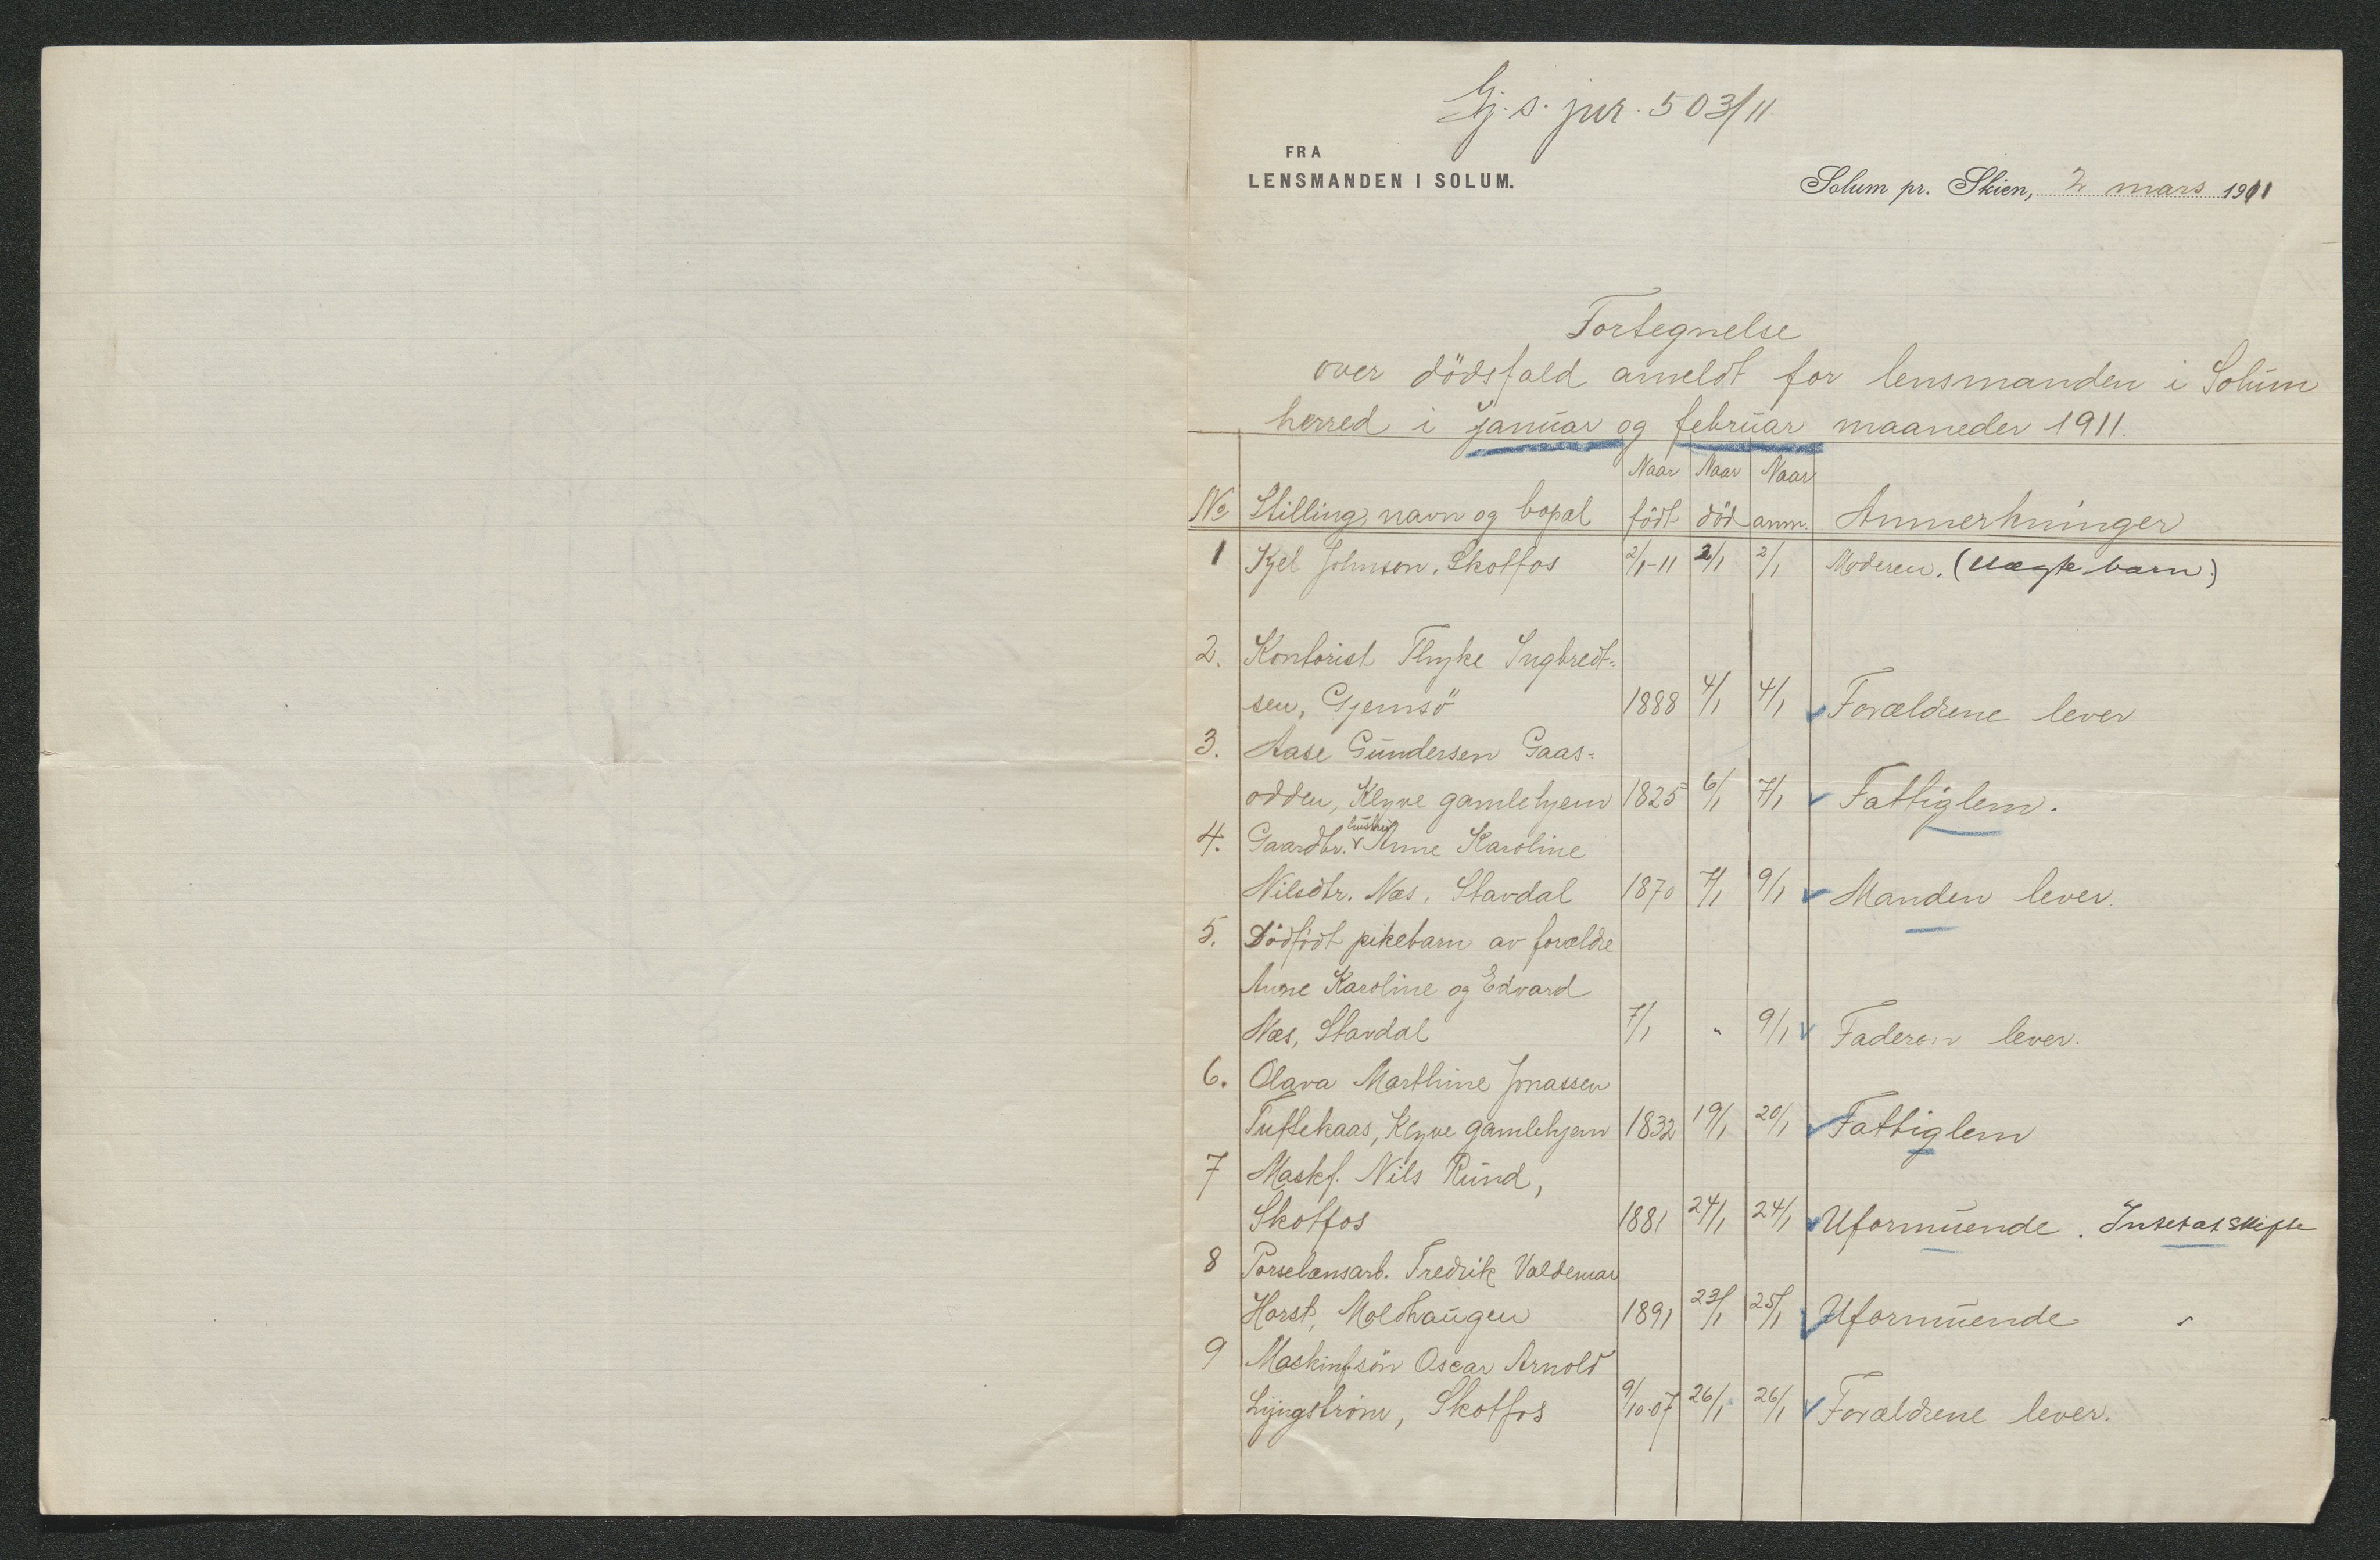 Gj. s. jnr. 503/11
FRA
LENSMANDEN I SOLUM.
Solum pr. Skien, 2 mars 1911
Fortegnelse
over dödsfald anmeldt for lensmanden i Solum
herred i januar og februar maaneder 1911.
No Stilling, navn og bopæl Naar födt Naar död Naar anm. Anmerkninger
1 Kjel Johnsen, Skotfos 2/1-11 2/1 2/1 Moderen. (Uægte barn.)
2. Kontorist Thyke Ingbredt-
sen, Gjemsö 1888 4/1 4/1 Forældrene lever
3. Aase Gundersen Gaas-
odden, Klyve gamlehjem 1825 6/1 7/1 Fattiglem.
4. Gaardbr. hustru Anne Karoline
Nilsdtr. Næs, Stavdal 1870 7/1 9/1 Manden lever.
5. Dödfödt pikebarn av forældre
Anne Karoline og Edvard
Næs, Stavdal 7/1 " 9/1 Faderen lever.
6. Olava Marthine Jonassen
Tuftekaas, Klyve gamlehjem 1832 19/1 20/1 Fattiglem
7 Maskf. Nils Rund,
Skotfos 1881 24/1 24/1 Uformuende. Intet at skifte
8 Porselænsarb. Fredrik Valdemar
Horst, Moldhaugen 1891 23/1 25/1 Uformuende "
9 Maskinf. sön Oscar Arnold
Ljungström, Skotfos 9/10-07 26/1 26/1 Forældrene lever.